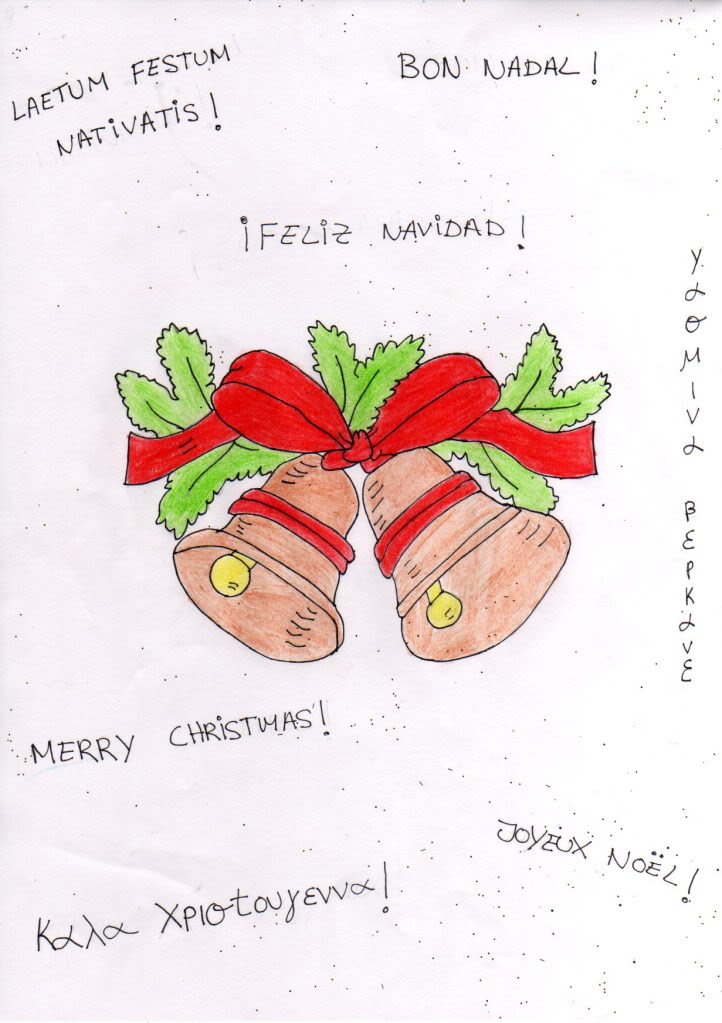 LAETUM FESTUM
NATIVATIS!
BON NADAL!
¡FELIZ NAVIDAD!
Υασμινα βερκανε
MERRY CHRISTMAS!
JOYEUX NOËL!
Καλα Χριστουγεννα!